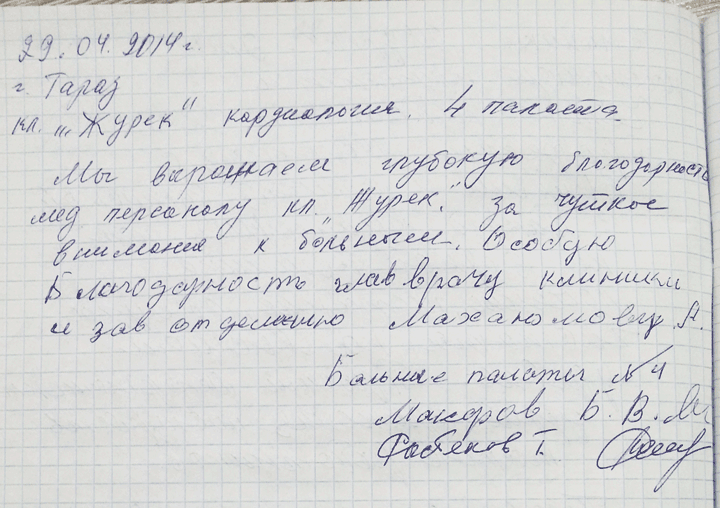 29.04.2014г.
г. Тараз
кл. "Журек" кардиология. 4 палата.
Мы выражаем глубокую благодарность
мед персоналу кл. "Журек." за чуткое
внимания к больным. Особую
Благодарность глав врачу клиники
и зав отделению А.
Больные палаты №4
Макаров Б. В.
Т.